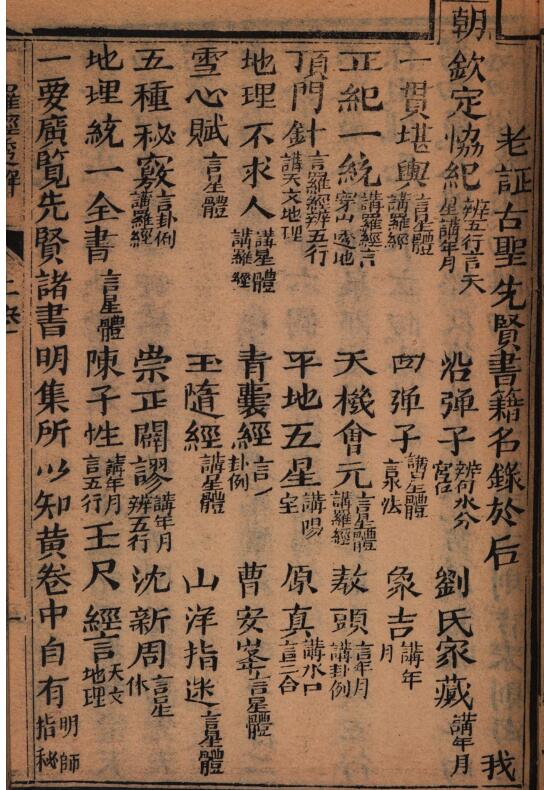 老証古聖先賢書籍名錄於后 我
朝欽定協紀 辨五行言天星講年月 沿弾子 辨向水分宮位 劉氏家藏 講年月
一貫堪輿 言星體講羅經 四弾子 講星體言泉法 象吉 講年月
正紀一統 講羅經言穿山透地 天機會元 言星體講羅經 敖頭 言年月講卦例
頂門針 言羅經辨五行講天文地理 平地五星 講陽宅 原真 講水口言三合
地理不求人 講星體講羅經 青囊經 言一卦例 曹安峯 言星體
雪心賦 言星體 玉隨經 講星體 山洋指迷 言星體
五種秘竅 言卦例講羅經 崇正闢謬 講年月辨五行 沈新周 言星休
地理統一全書 言星體 陳子性 講年月言五行 玉尺經 言天文地理
一要廣覽先賢諸書明集所以知黄卷中自有明師指秘